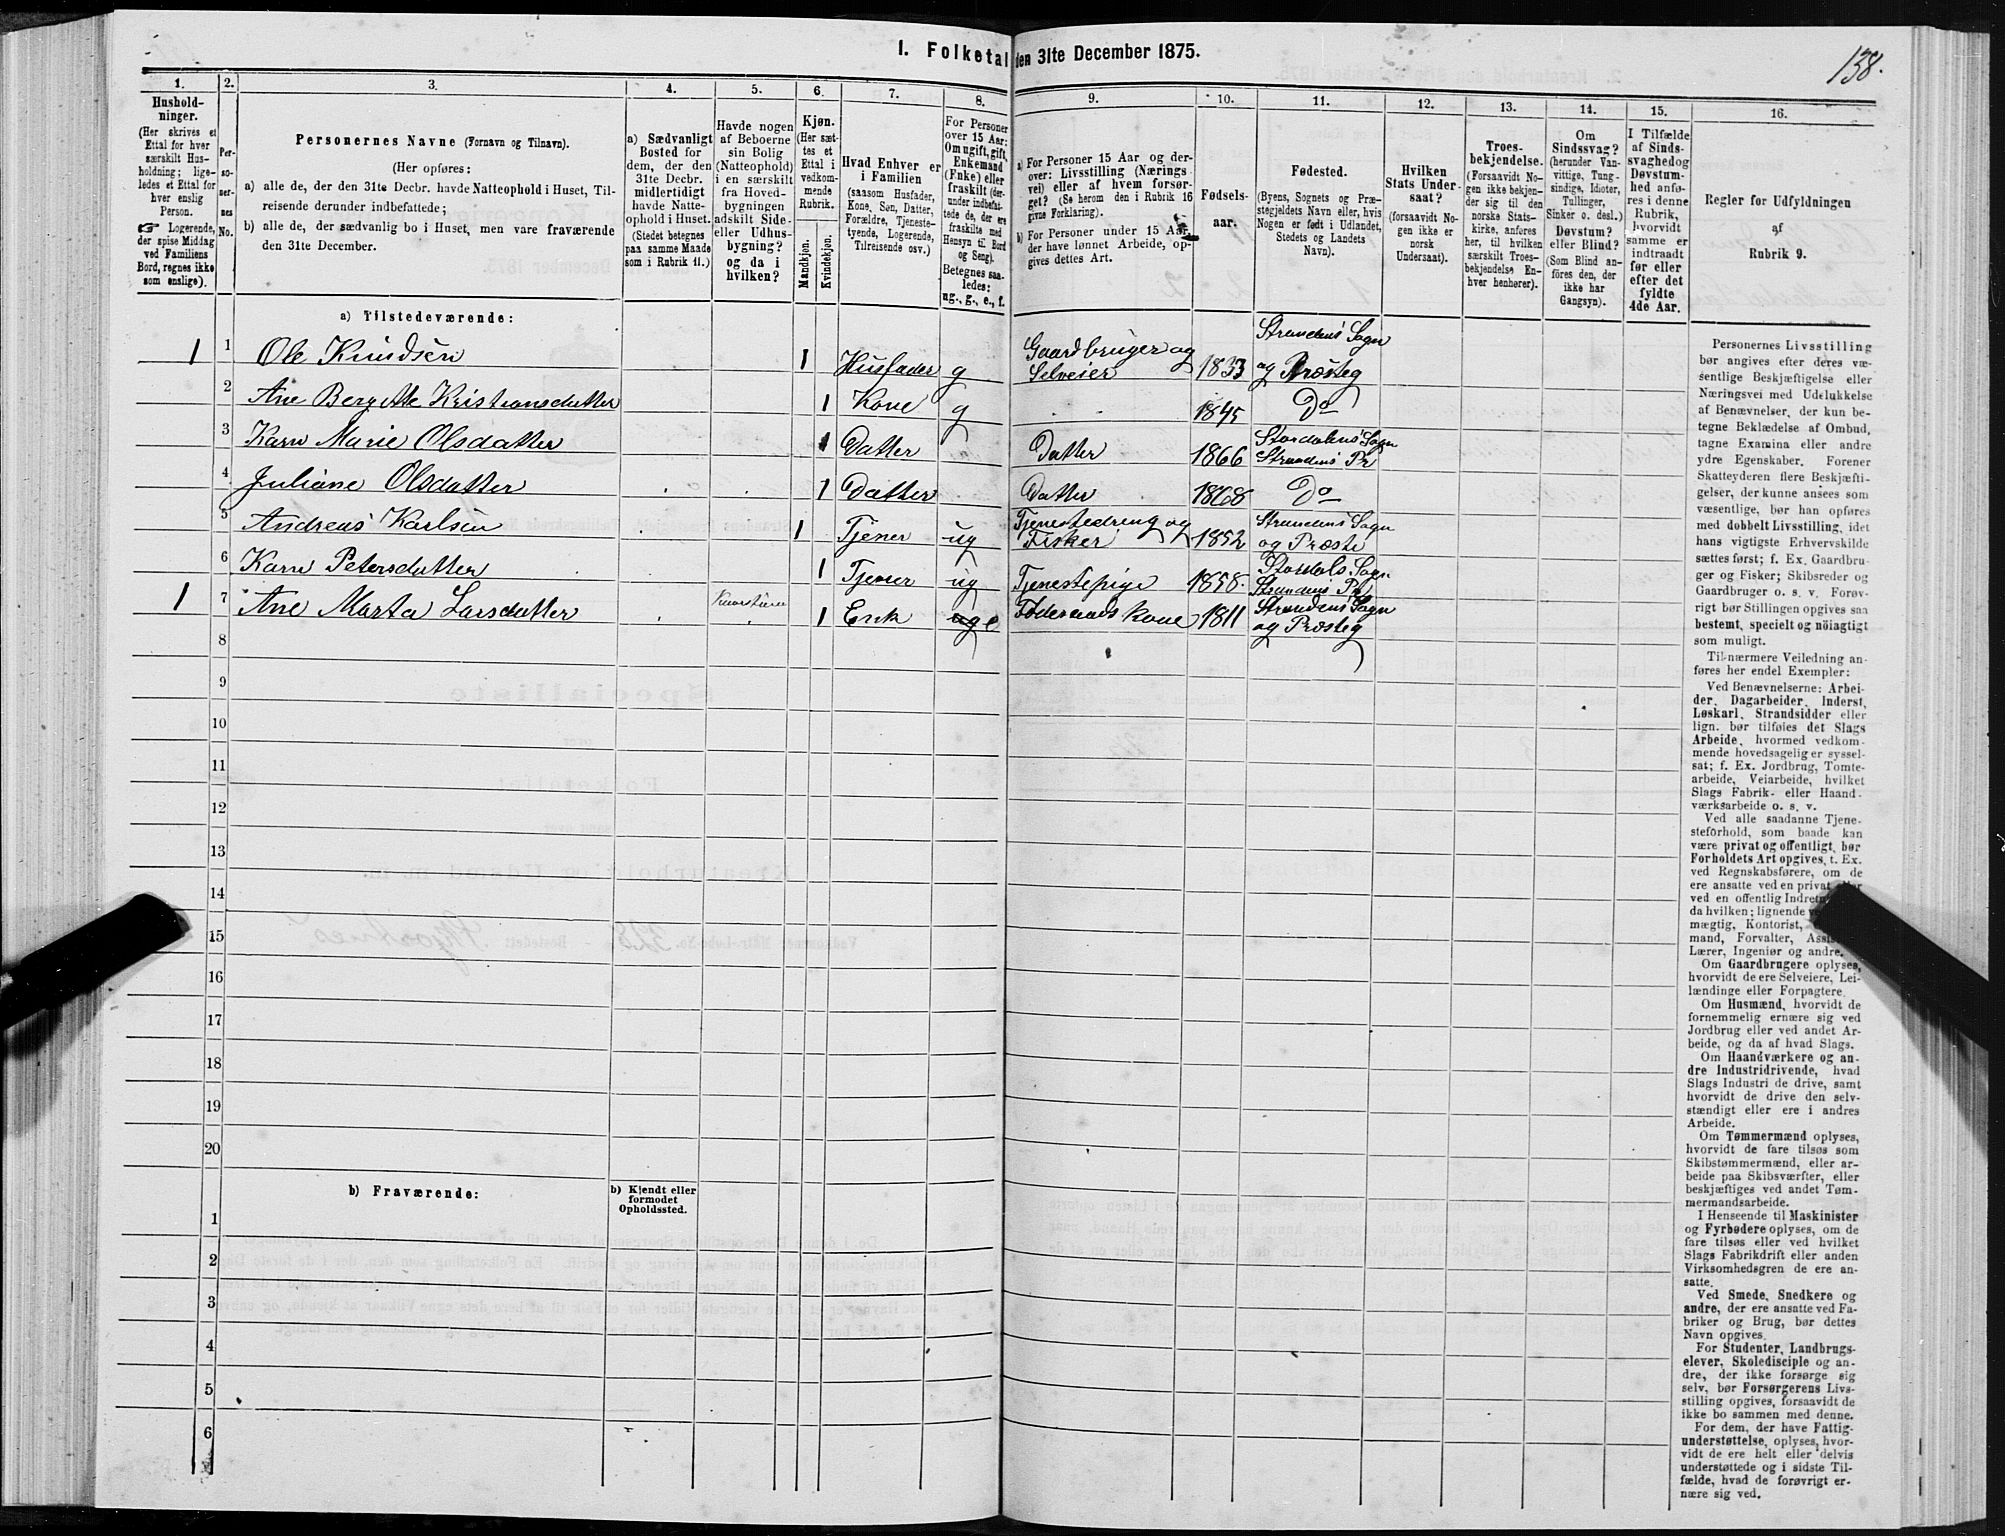 1. Folketal den 31te December 1875.
138.
1. 2. 3. 4. 5. 6. 7. 8. 9. 10. 11. 12. 13. 14. 15. 16.
Hushold-
ninger.
(Her skrives et
Ettal for hver
særskilt Hus-
holdning; lige-
ledes et Ettal for
hver enslig
Person.
☞ Logerende,
der spise Middag
ved Familiens
Bord, regnes ikke
som enslige).
Per-
so-
ner-
nes
No.
Personernes Navne (Fornavn og Tilnavn).
(Her opføres:
a) alle de, der den 31te Decbr. havde Natteophold i Huset, Til-
reisende derunder indbefattede;
b) alle de, der sædvanlig bo i Huset, men vare fraværende
den 31te December.
a) Sædvanligt
Bosted for
dem, der den
31te Decbr.
midlertidigt
havde Natte-
ophold i Huset.
(Stedet betegnes
paa samme Maade
som i Rubrik 11.)
Havde nogen
af Beboerne
sin Bolig
(Natteophold)
i en særskilt
fra Hoved-
bygningen
adskilt Side-
eller Udhus-
bygning?
og da i
hvilken?
Kjøn.
(Her sæt-
tes et
Ettal i
vedkom-
mende
Rubrik.
Mandkjøn.
Kvindekjøn.
Hvad Enhver er
i Familien
(saasom Husfader,
Kone, Søn, Datter,
Forældre, Tjeneste-
tyende, Logerende,
Tilreisende
osv.)
For Personer
over 15 Aar:
Om ugift, gift,
Enkemand
(Enke) eller
fraskilt (der-
under indbefat-
tede de, der ere
fraskilte med
Hensyn til Bord
og Seng).
Betegnes saa-
ledes:
ug., g., e., f.
a) For Personer 15 Aar og der-
over: Livsstilling (Nærings-
vei) eller af hvem forsør-
get? (Se herom den i Rubrik 16
givne Forklaring).
b) For Personer under 15 Aar,
der have lønnet Arbeide, op-
gives dettes Art.
Fødsels-
aar.
Fødested.
(Byens, Sognets og Præ-
stegjeldets Navn eller, hvis
Nogen er født i Udlandet,
Stedets og Landets
Navn).
Hvilken
Stats Under-
saat?
(forsaavidt No-
gen ikke er
norsk
Undersaat).
Troes-
bekjendelse.
(Forsaavidt No-
gen ikke bekjen-
der sig til den
norske Stats-
kirke, anføres
her, til hvilken
særskilt Troes-
bekjendelse En-
hver henhører).
Om
Sindssvag?
(herunder Van-
vittige, Tung-
sindige, Idioter,
Tullinger,
Sinker o. desl.)
Døvstum?
eller Blind?
(Som Blind an-
föres den, der
ikke har
Gangsyn).
I Tilfælde
af Sinds-
svaghed og
Døvstum-
hed anfø-
res i denne
Rubrik,
hvorvidt
samme er
indtraadt
før eller
efter det
fyldte
4de Aar.
Regler før Udfyldningen
af
Rubrik 9.
a) Tilstedeværende:
1 1 Ole Knudsen 1 Husfader g Gaardbruger og Selveier 1833 Strandens Sogn og Præsteg
2 Ane Bergitte Kristiansdatter 1 Kone g 1845 Do
3 Karn Marie Olsdatter 1 Datter Datter 1866 Stordalens Sogn Strandens Pr
4 Juliane Olsdatter 1 Datter Datter 1868 Do
5 Andreas Karlsen 1 Tjener ug Tjenestedreng og Fisker 1852 Strandens Sogn og Præste
6 Karn Petersdatter 1 Tjener ug Tjenestepige 1858 Stordals Sogn Strandens Pr
1 7 Ane Marta Larsdatter 1 Enk e Føderaads Kone 1811 Strandens Sogn og Præsteg
8
9
10
11
12
13
14
15
16
17
18
19
20
b) Fraværende:
b) Kjendt eller
formodet
Opholdssted.
1
2
3
4
5
6
Personernes Livsstilling
bør angives efter deres væ-
sentlige Beskjæftigelse eller
Næringsvei med Udelukkelse
af Benævnelser, der kun be-
tegne Beklædelse af Ombud,
tagne Examina eller andre
ydre Egenskaber. Forener
Skatteyderen flere Beskjæfti-
gelser, der kunne ansees som
væsentlige, bør han opføres
med dobbelt Livsstilling, idet
hans vigtigste Erhvervskilde
sættes først; f. Ex. Gaardbru-
ger og Fisker; Skibsreder og
Gaardbruger o. s. v. Forøv-
rigt bør Stillingen opgives saa
bestemt, specielt og nöiagtigt
som muligt.
Til nærmere Veiledning an-
føres her endel Exempler:
Ved Benævnelserne: Arbei-
der, Dagarbeider, Inderst,
Løskarl, Strandsidder eller
lign. bør tilføies det Slags
Arbeide, hvormed vedkom-
mende hovedsagelig er syssel-
sat; f. Ex. Jordbrug, Tomte-
arbeide, Veiarbeide, hvilket
Slags Fabrik- eller Haand-
værksarbeide o. s. v.
Ved alle saadanne Tjene-
steforhold, som baade kan
være privat og offentligt, bør
Forholdets Art opgives, t. Ex.
ved Regnskabsførere, om de
ere ansatte ved en privat eller
ved en offentlig
da hvilken; lignende
mægtig, Kontorist,
mand, Forvalter,
Lærer, Ingeniør og andre.
Om Gaardbrugere oplyses,
hvorvidt de ere Selveiere, Lei-
lændinge eller Forpagtere.
Om Husmænd, hvorvidt de
fornemmelig ernære sig ved
Jordbrug eller ved andet Ar-
beide, og da af hvad Slags.
Om Haandværkere og an-
dre Industridrivende, hvad
Slags Industri de drive, samt
hvorvidt de drive den selv-
stændigt eller ere i andres
Arbeide.
Om Tømmermænd oplyses,
hvorvidt de fare tilsøs som
Skibstømmermænd, eller ar-
beide paa Skibsværfter, eller
beskjæftiges ved andet Tøm-
mermandsarbeide.
I Henseende til Maskinister
og Fyrbødere oplyses, om de
fare tilsøs eller ved hvilket
Slags Fabrikdrift eller anden
Virksomhedsgren de ere an-
satte.
Ved Smede, Snedkere og
andre, der ere ansatte ved Fa-
briker og Brug, bør dettes
Navn opgives.
For Studenter, Landbrugs-
elever, Skoledisciple og an-
dre, der ikke forsørge sig
selv, bør Forsørgerens Livs-
stilling opgives, forsaavidt de
ikke bo sammen med denne.
For dem, der have Fattig-
understøttelse, oplyses, hvor-
vidt de ere helt eller delvis
understøttede og i sidste Til-
fælde, hvad de forøvrigt er-
nære sig ved.